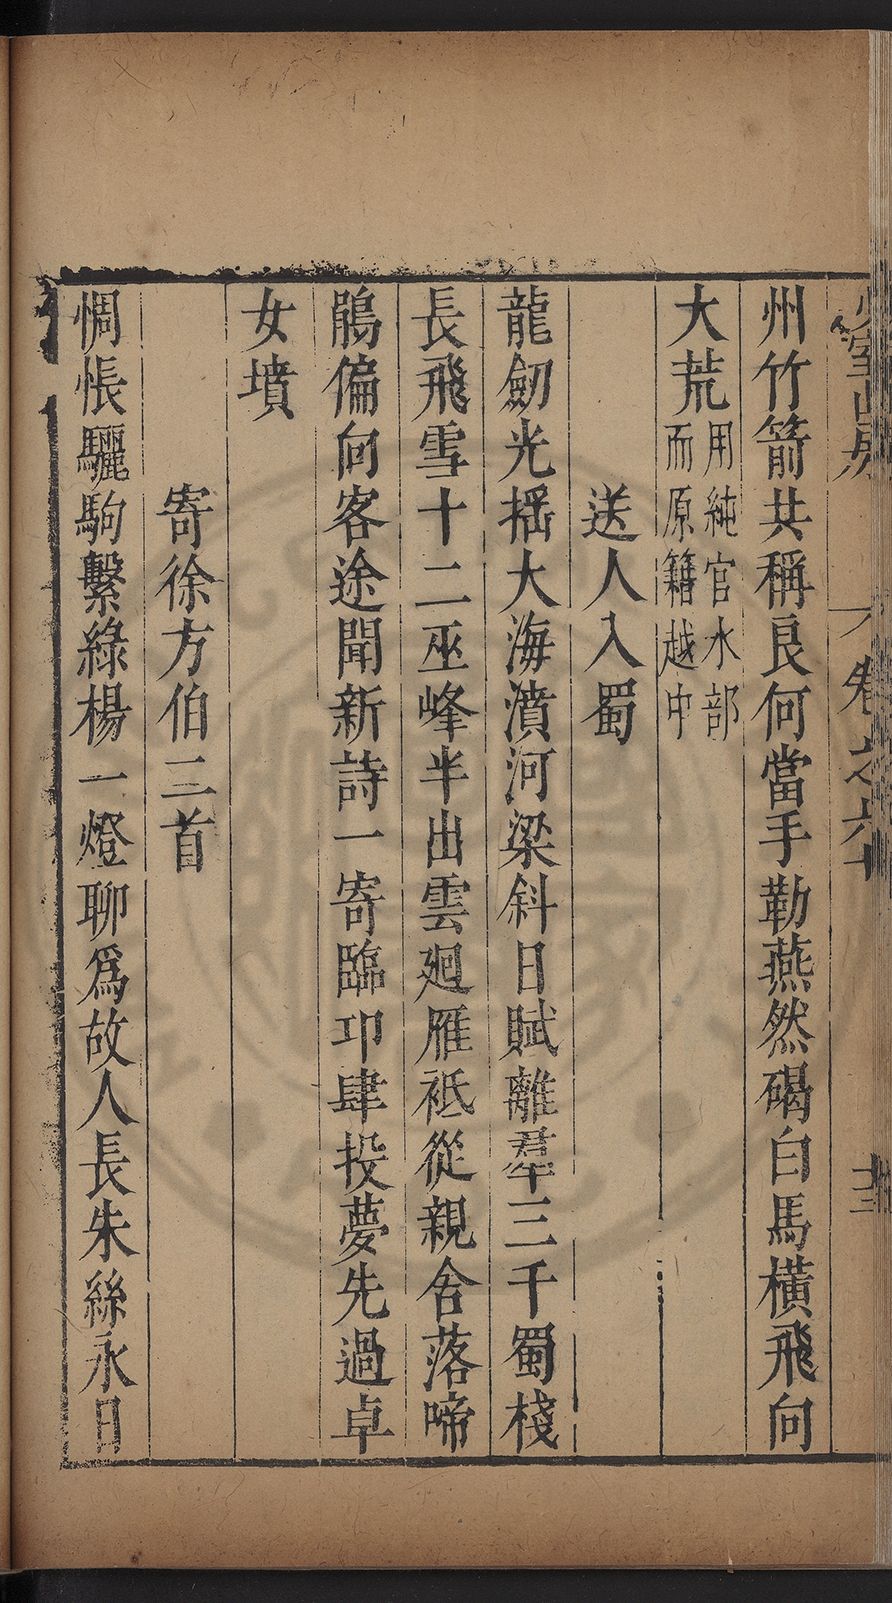 少室山房
卷之六十
十三
州竹箭共稱良何當手勒燕然碣白馬橫飛向
大荒
用純官水部
而原籍越中
送人入蜀
龍劒光揺大海濆河梁斜日賦離羣三千蜀棧
長飛雪十二巫峰半出雲廻雁衹從親舍落啼
鵑偏向客途聞新詩一寄臨卭肆投夢先過卓
女墳
寄徐方伯三首
惆悵驪駒繫綠楊一燈聊爲故人長朱絲永日